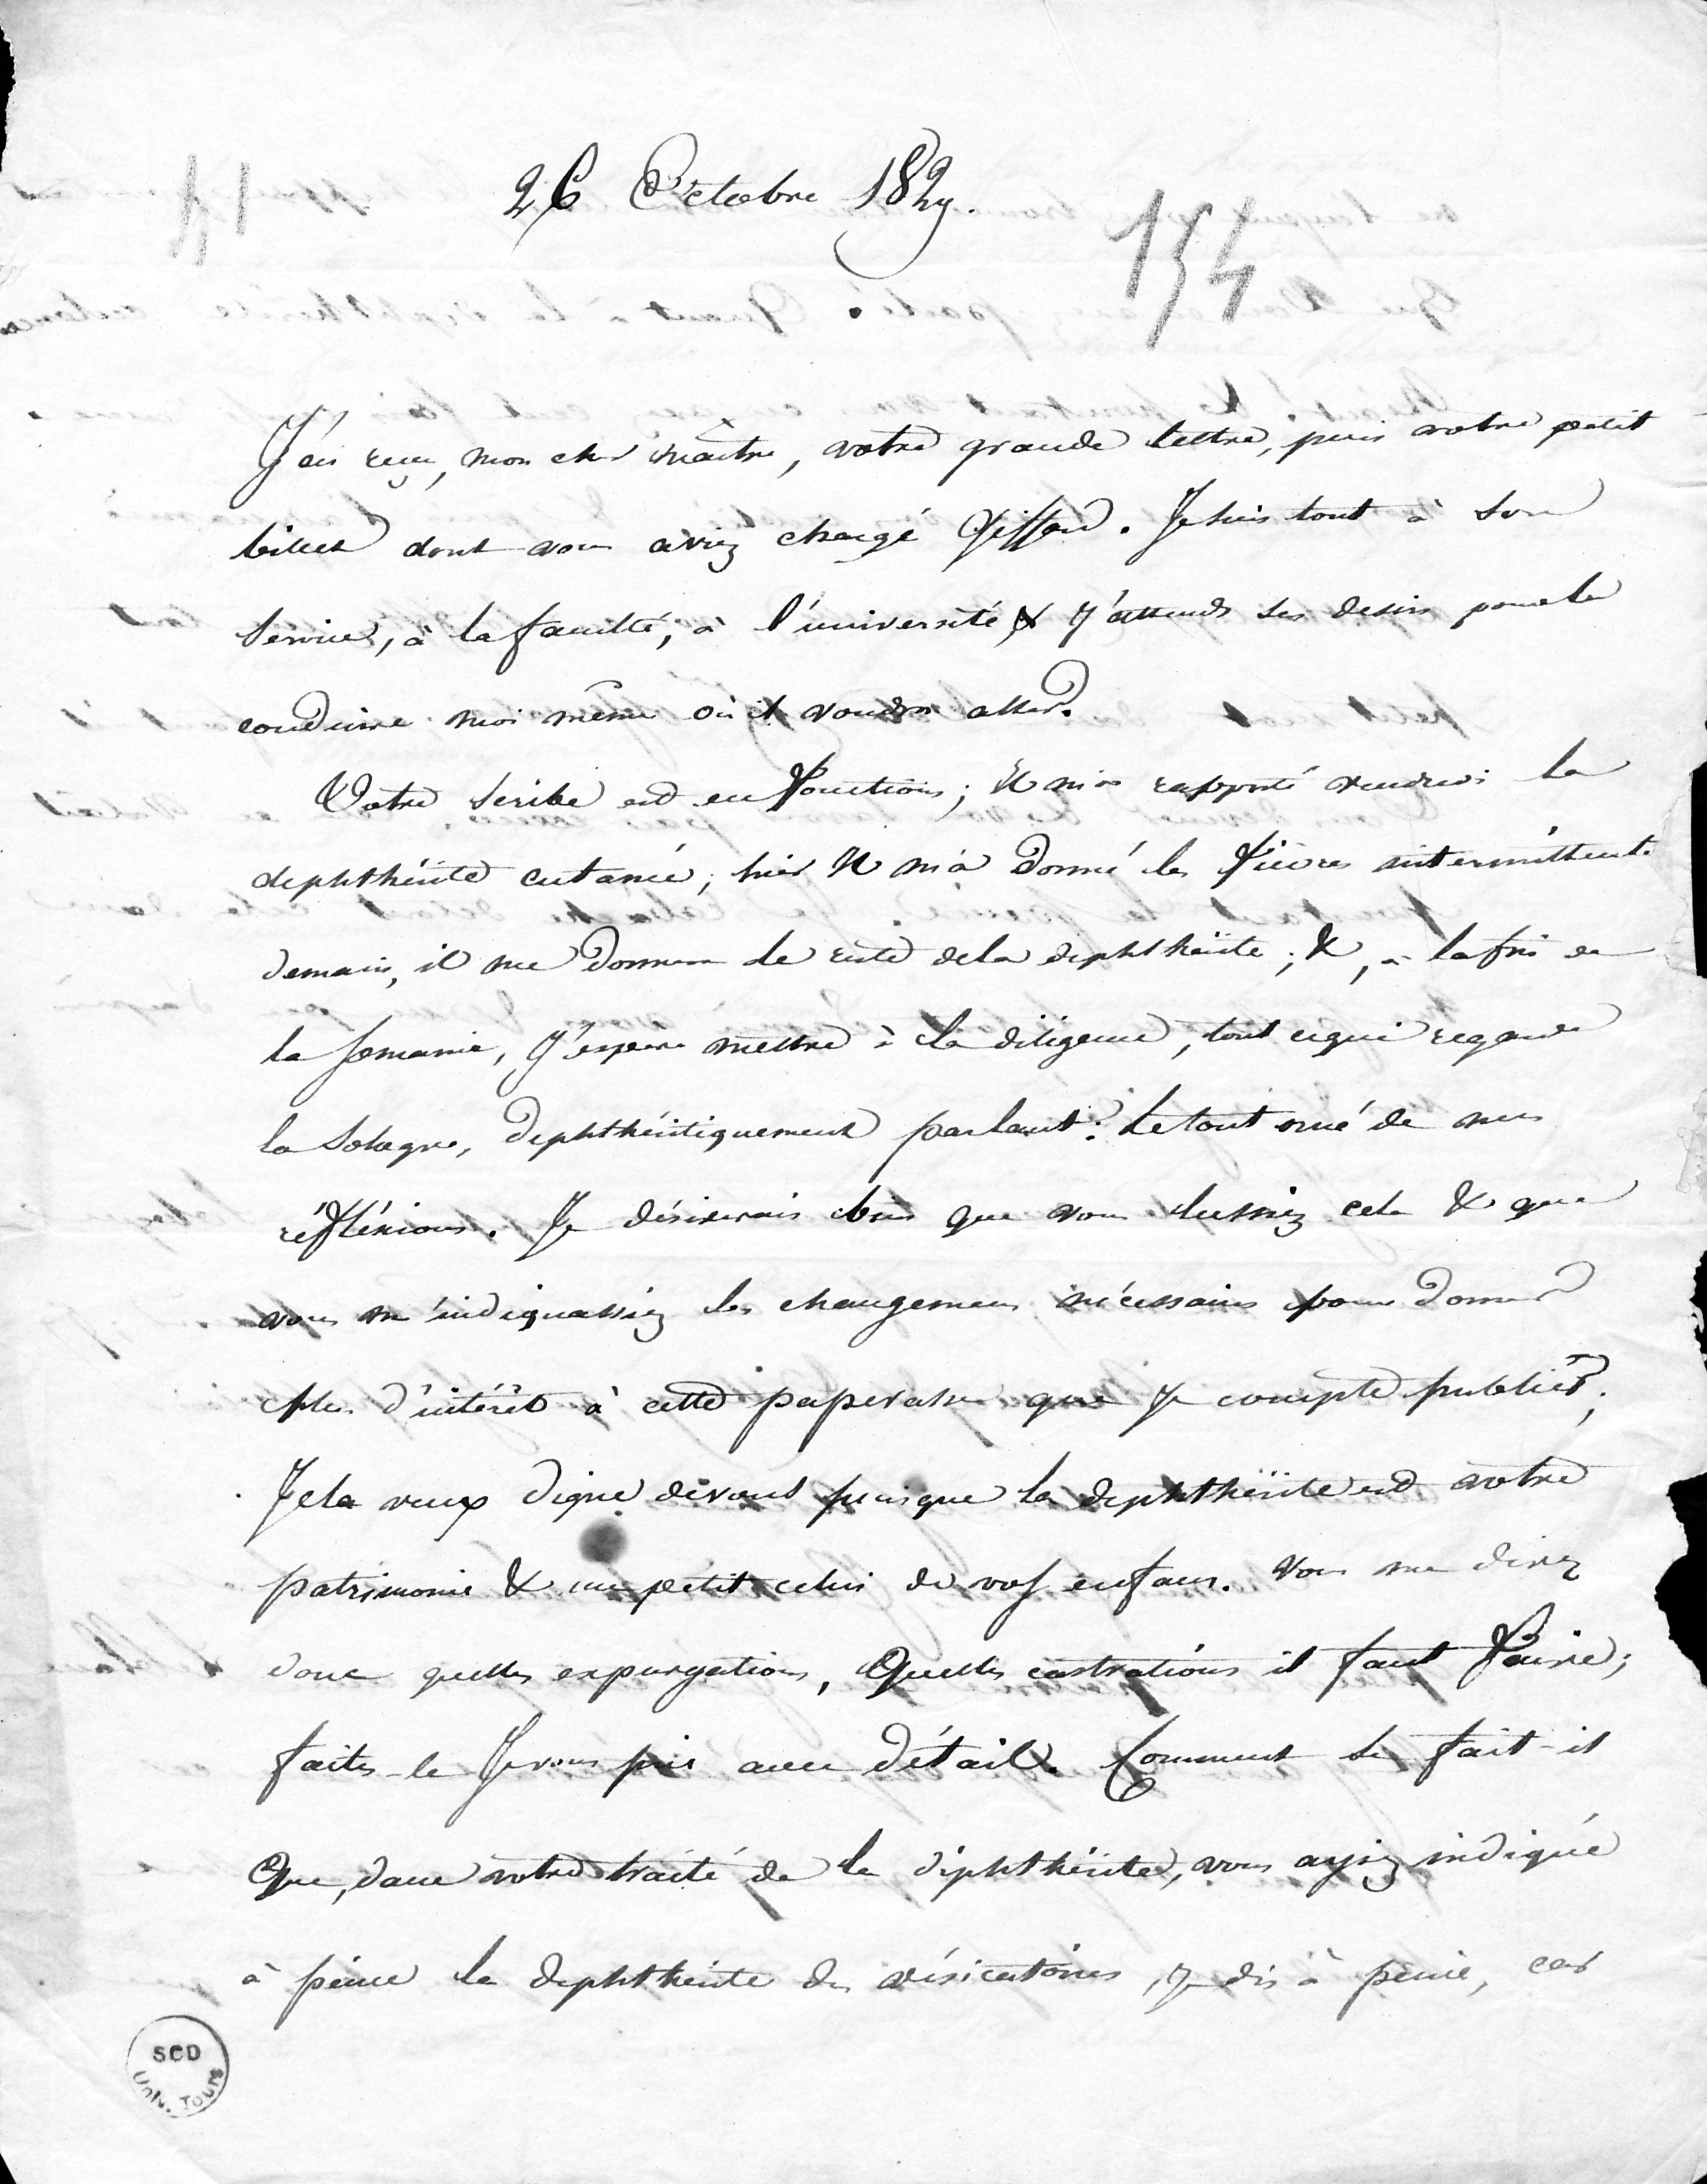 41
26 Octobre 1829.
154
J'ai reçu, mon cher maître, votre grande lettre, puis votre petit
billet dont vous aviez chargé Giffard. Je suis tout à son
service, à la faculté, à l'université & j'attends ses desirs pour le
conduire moi même où il voudra aller.
Votre scribe est en fonctions; il m'a rapporté vendredi la
diphthérite cutanée, hier il m'a donné les fièvres intermittent.
demain, il me donnera le reste de la diphthérite; &, à la fin de
la semaine, j'espère mettre à la diligence, tout ce qui regarde
la Sologne, diphthéritiquement parlant: le tout orné de mes
réfléxions. Je désirerais bien que vous lussiez cela & que
vous m'indiquassiez les changemens nécessaires pour donner
plus d'intérêt à cette paperasse que je compte publier;
Je la veux digne de vous puisque la diphthérite est votre
patrimoine & un petit celui de vos enfans. Vous me direz
donc quelles expurgations, quelles castrations il faut faire;
faites-le je vous prie avec détail. Comment se fait-il
que, dans votre traité de la diphthérite, vous ayiez indiqué
à peine la diphthérite des vésicatoires, je dis à peine, car
SCD
Univ. Tours